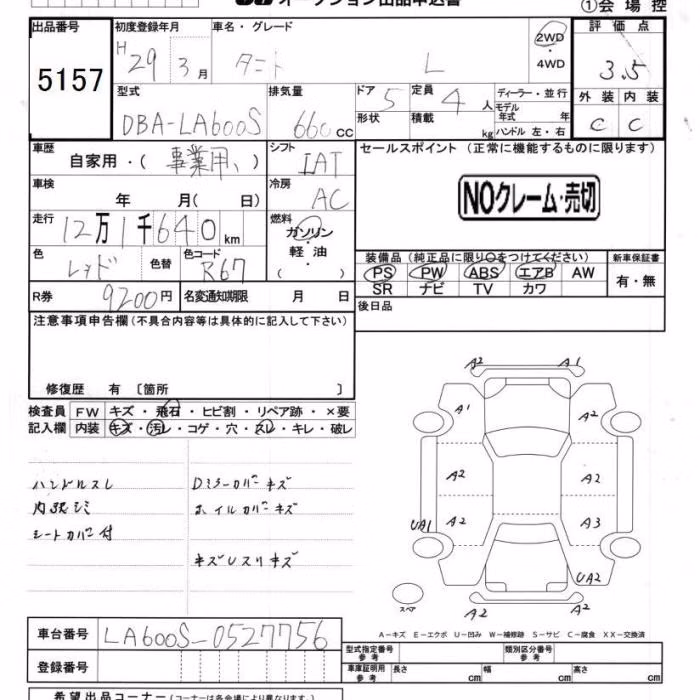 オークション出品申込書
①会場控
出品番号 初度登録年月 車名・グレード 評価点
5157 H 29 3月 タント L 2WD ・ 4WD 3.5
型式 排気量 ドア 定員 ディーラー・並行 外装 内装
DBA-LA600S 660cc 5 4人 モデル年式 年 C C
形状 積載 kg ハンドル 左・右
車歴 自家用・(事業用、) シフト IAT セールスポイント (正常に機能するものに限ります)
車検 年 月( 日) 冷房 AC NOクレーム・売切
走行 12万1千640km 燃料 ガソリン・軽油・( )
色 レッド 色替 色コード R67 装備品 (純正品に限り○をつけてください) 新車保証書
PS PW ABS エアB AW 有・無
SR ナビ TV カワ
R券 9200円 名変通知期限 月 日 後日品
注意事項申告欄(不具合内容等は具体的に記入して下さい)
修復歴 有 〔箇所 〕
検査員 FW キズ・飛石・ヒビ割・リペア跡・×要
記入欄 内装 キズ・汚レ・コゲ・穴・スレ・キレ・破レ
ハンドルスレ Dミラーカバーキズ
内張シミ ホイルカバーキズ
シートカバー付
キズUスリキズ
A2 A1
A1 A2
A2 A2
UA1 A2 A3
UA2
A2 A2
スペア
A-キズ E-エクボ U-凹み W-補修跡 S-サビ C-腐食 XX-交換済
車台番号 LA600S-0527756
型式指定番号 参考 類別区分番号 参考
登録番号 車庫証明用 参考 長さ cm 幅 cm 高さ cm
希望出品コーナー(コーナーは各会場により異なります。)